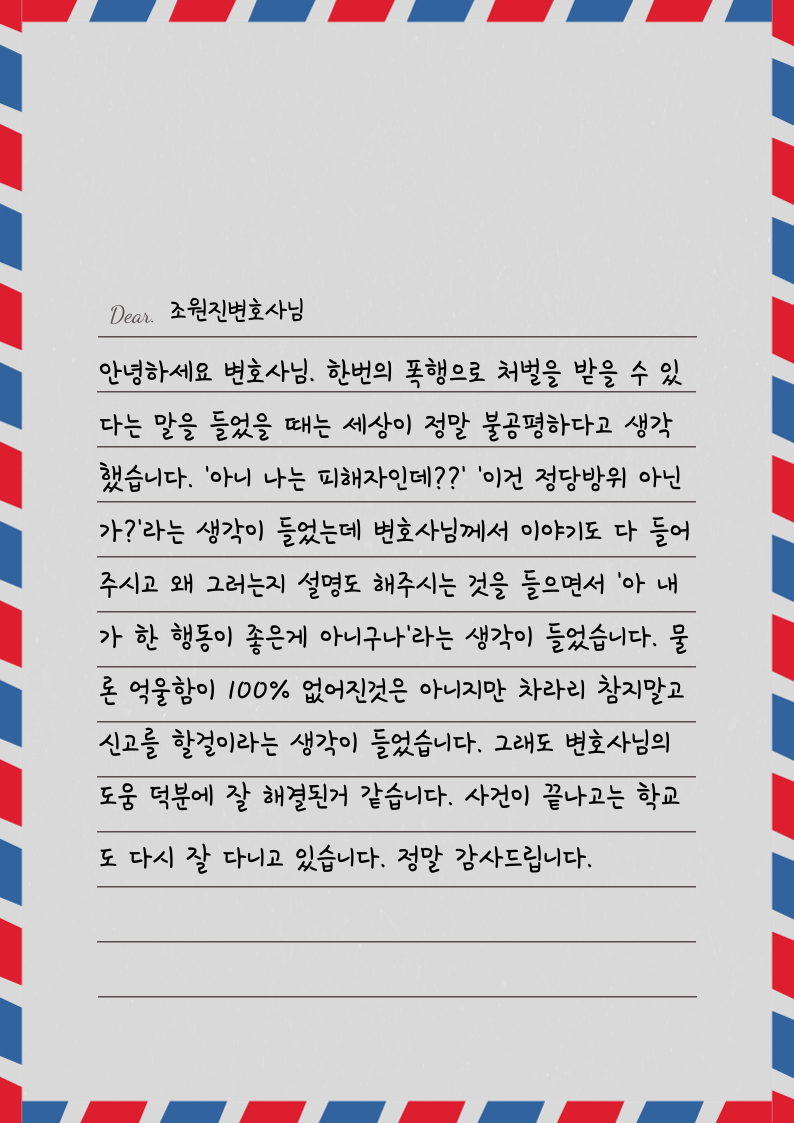 Dear. 조원진변호사님
안녕하세요 변호사님. 한번의 폭행으로 처벌을 받을 수 있
다는 말을 들었을 때는 세상이 정말 불공평하다고 생각
했습니다. '아니 나는 피해자인데??' '이건 정당방위 아닌
가?'라는 생각이 들었는데 변호사님께서 이야기도 다 들어
주시고 왜 그러는지 설명도 해주시는 것을 들으면서 '아 내
가 한 행동이 좋은게 아니구나'라는 생각이 들었습니다. 물
론 억울함이 100% 없어진것은 아니지만 차라리 참지말고
신고를 할걸이라는 생각이 들었습니다. 그래도 변호사님의
도움 덕분에 잘 해결된거 같습니다. 사건이 끝나고는 학교
도 다시 잘 다니고 있습니다. 정말 감사드립니다.